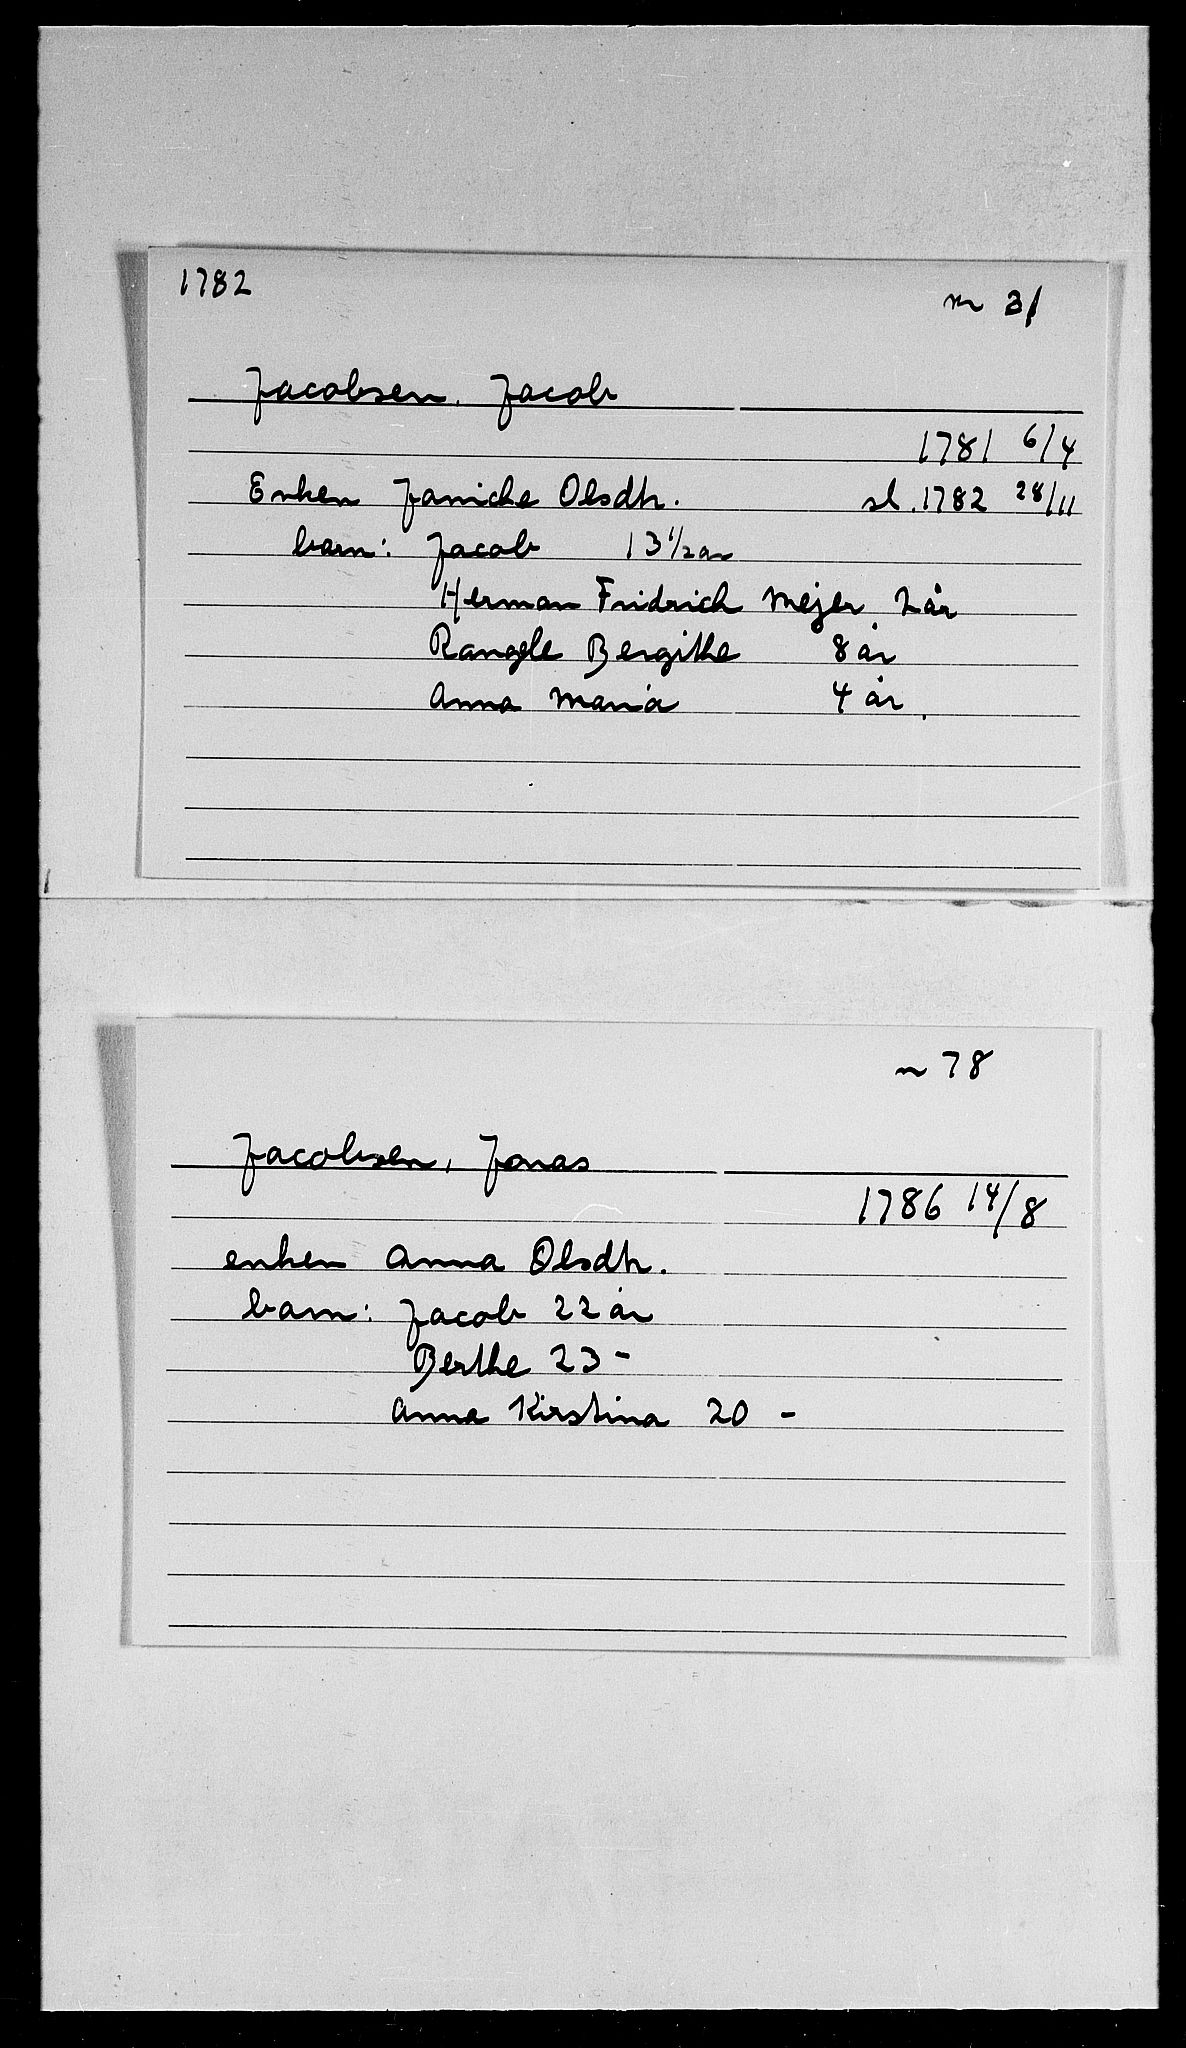 1782
nr 31
Jacobsen, Jacob
1781 6/4
Enken Janiche Olsdtr. sl. 1782 28/11
barn: Jacob 13 1/2 år
Herman Fridrich Mejer 2 år
Rangele Bergithe 8 år
Anna Maria 4 år.
nr 78
Jacobsen, Jonas
1786 14/8
enken Anna Olsdtr.
barn: Jacob 22 år
Berthe 23 -
Anna Kirstina 20 -